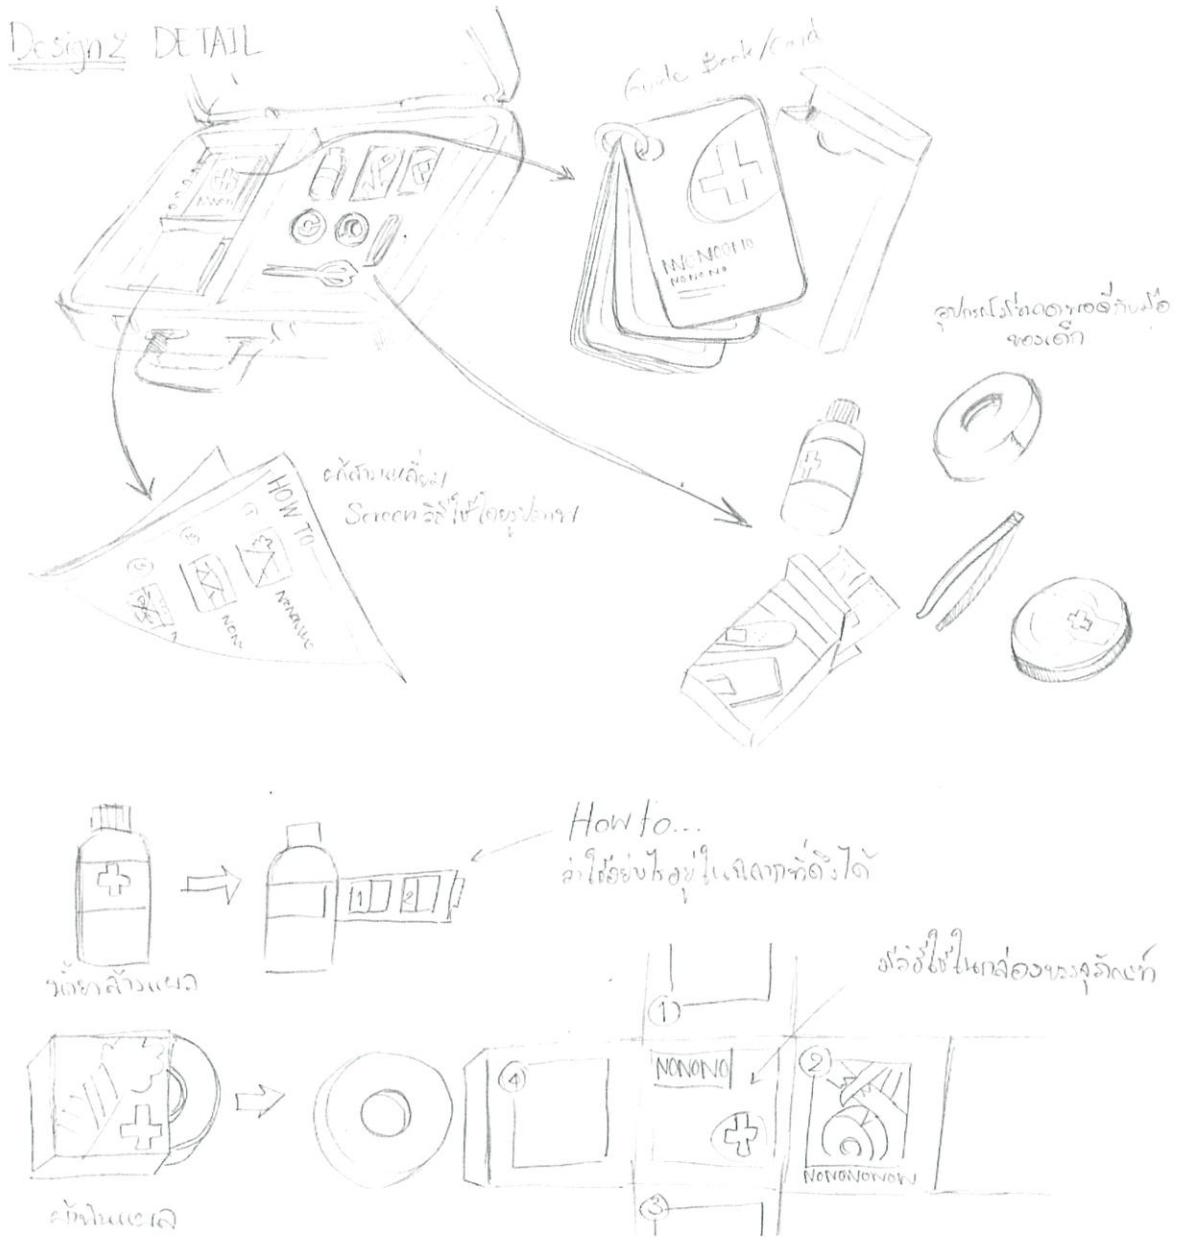 Design 2 DETAIL
Guide Book/Card
MNONONO
NONONO
อุปกรณ์มีขนาดพอดีกับมือ
ของเด็ก
ผ้าสามเหลี่ยม
Screen วิธีใช้โดยรูปภาพ
HOW TO
1
2
3
NONONONO
NON
N
How to...
ว่าใช้อย่างไรอยู่ในฉลากที่ดึงได้
1 2
น้ำยาล้างแผล
มีวิธีใช้ในกล่องบรรจุภัณฑ์
1
4
NONONO
2
NONONONON
3
ผ้าพันแผล